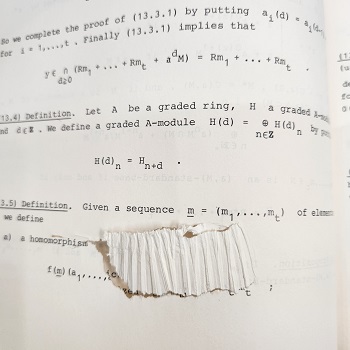 So we complete the proof of (13.3.1) by putting a_i(d) = a_i(d-
for i = 1,...,t . Finally (13.3.1) implies that
y ∈ ∩ (Rm_1 + ... + Rm_t + a^d M) = Rm_1 + ... + Rm_t .
d≥0
13.4) Definition. Let A be a graded ring, H a graded A-
nd d∈Z . We define a graded A-module H(d) = ⊕ H(d)_n by
n∈Z
H(d)_n = H_{n+d} .
3.5) Definition. Given a sequence m = (m_1,...,m_t) of elem
we define
a) a homomorphism
f(m)(a_1,...,
t t ;